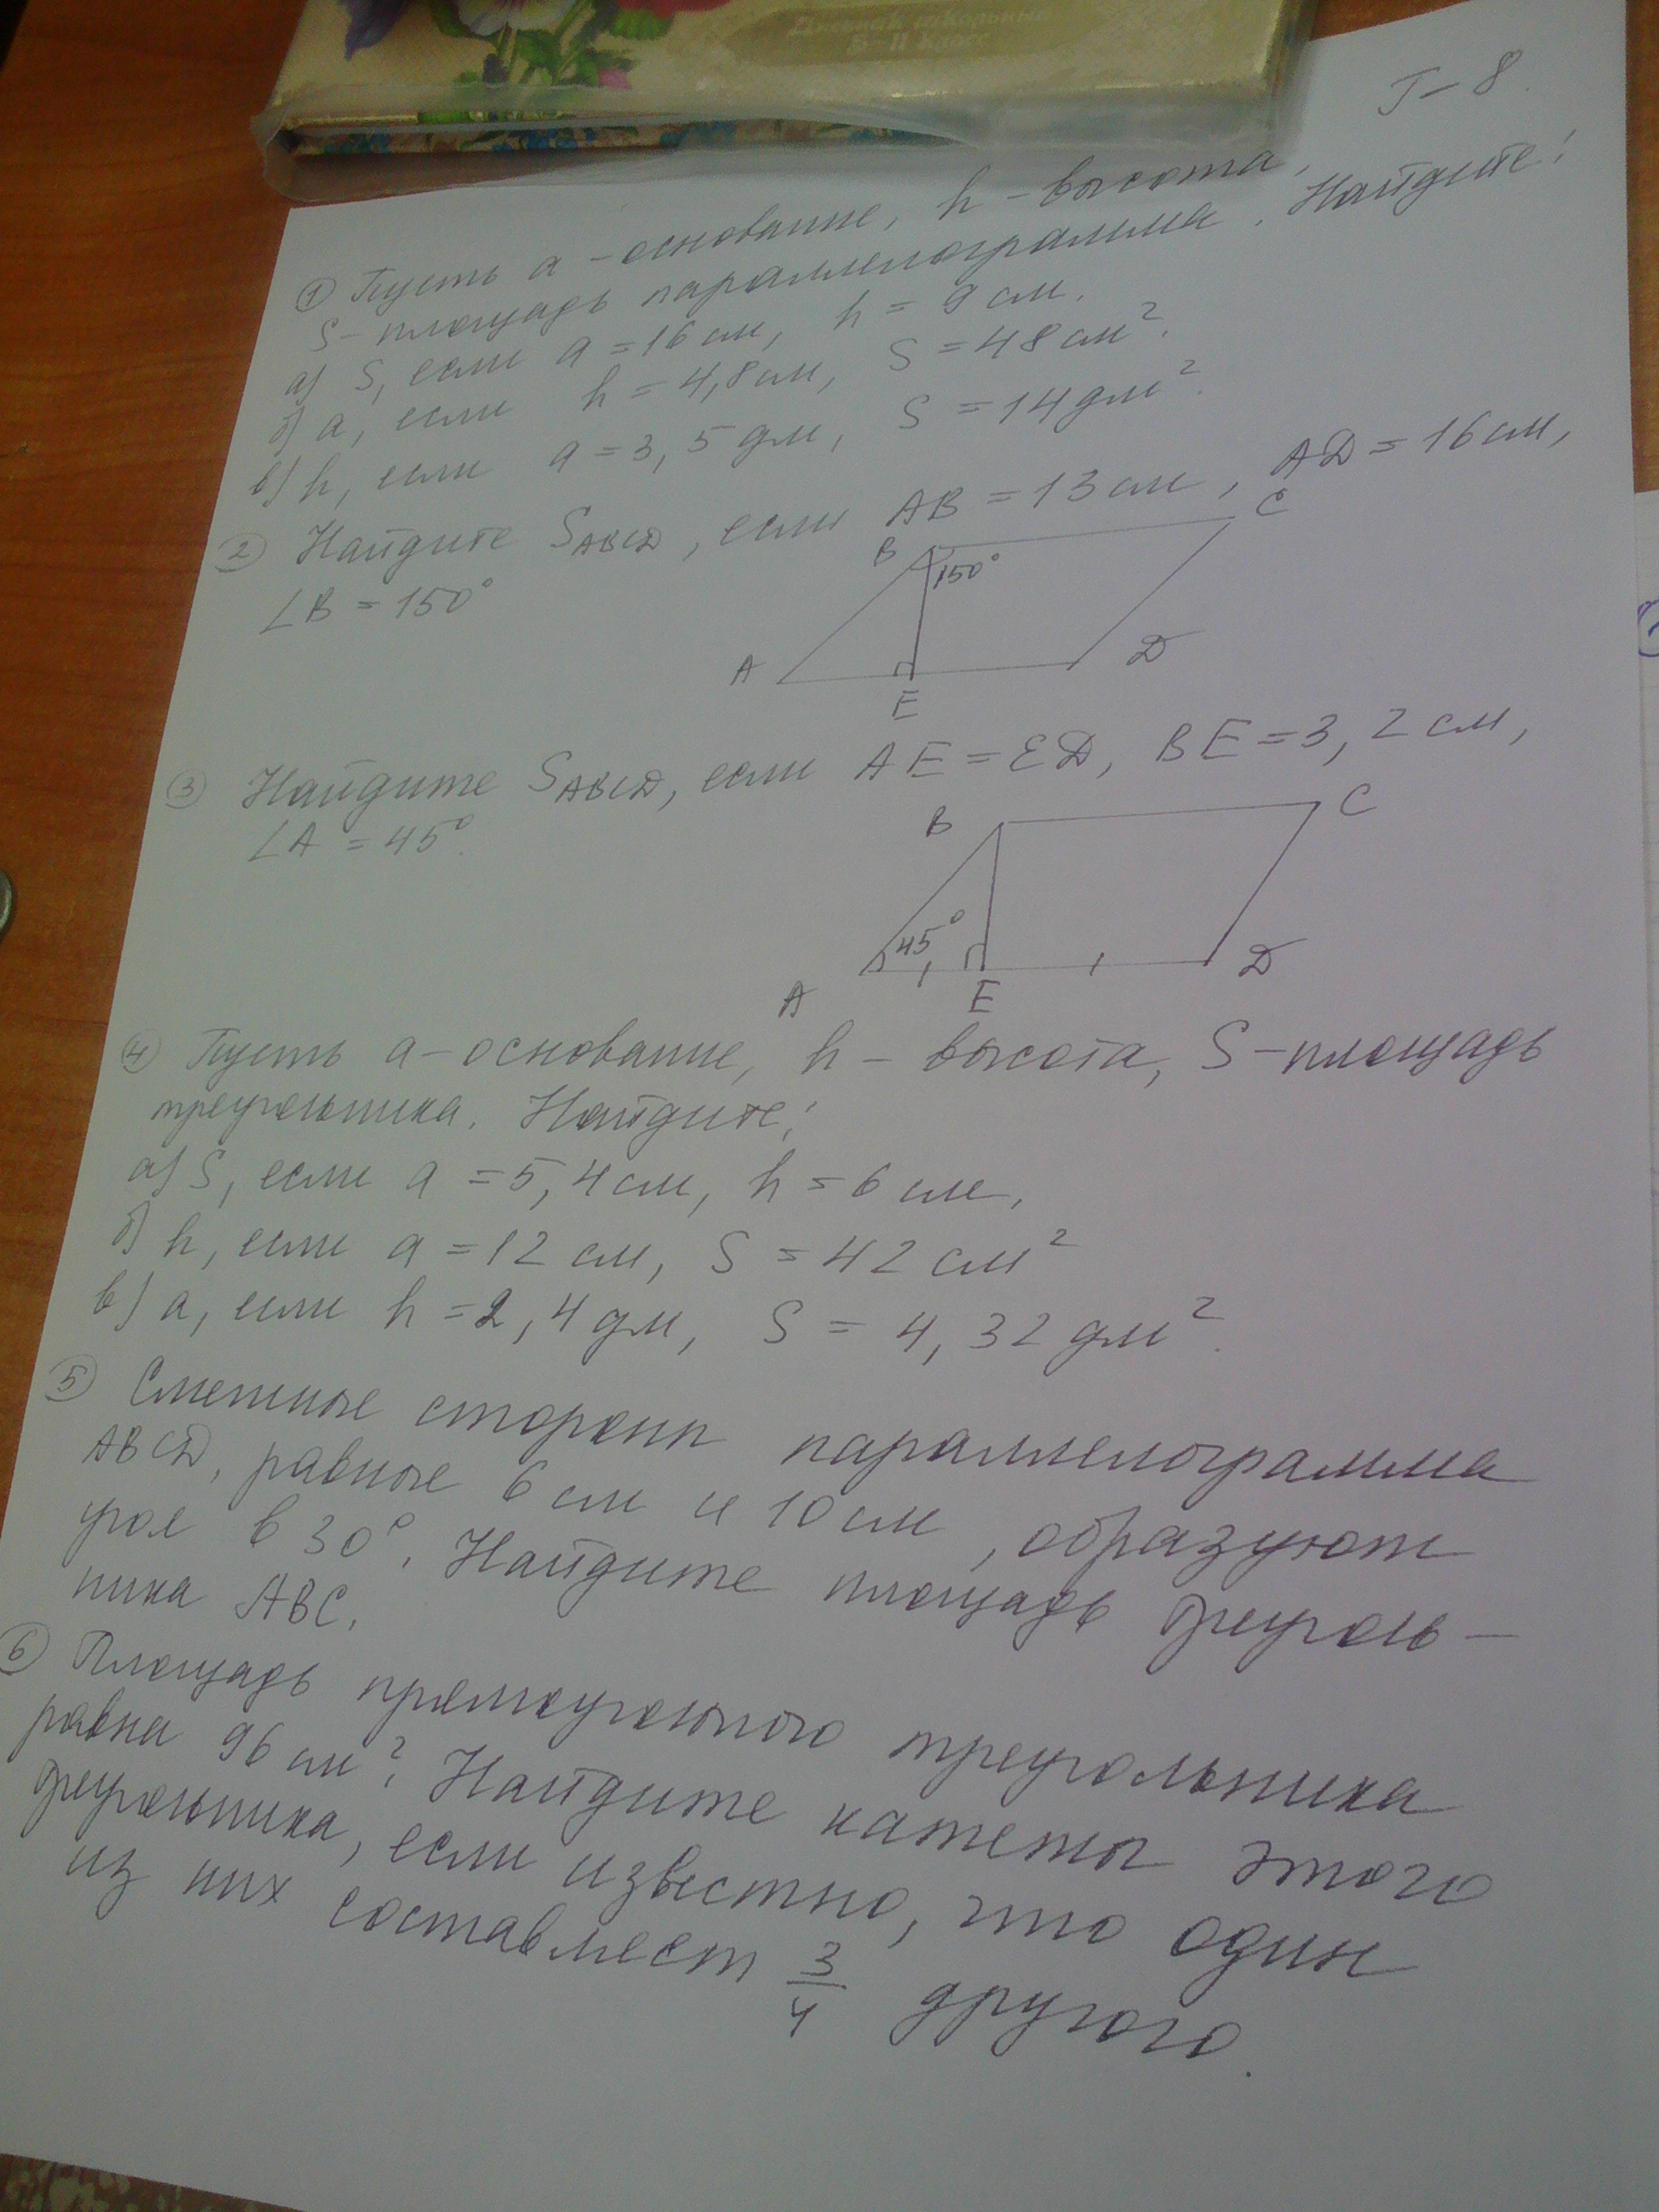 Дневник школьный
5-11 класс
Г-8.
① Пусть a - основание, h - высота,
S - площадь параллелограмма. Найдите:
а) S, если a = 16 см, h = 9 см.
б) a, если h = 4,8 см, S = 48 см².
в) h, если a = 3,5 дм, S = 14 дм².
② Найдите SABCD, если AB = 13 см, AD = 16 см,
∠B = 150°
B
C
150°
A
E
D
③ Найдите SABCD, если AE = ED, BE = 3,2 см,
∠A = 45°.
B
C
45°
A
E
D
④ Пусть a - основание, h - высота, S - площадь
треугольника. Найдите:
а) S, если a = 5,4 см, h = 6 см,
б) h, если a = 12 см, S = 42 см²
в) a, если h = 2,4 дм, S = 4,32 дм².
⑤ Смежные стороны параллелограмма
ABCD, равные 6 см и 10 см, образуют
угол в 30°. Найдите площадь треуголь-
ника ABC.
⑥ Площадь прямоугольного треугольника
равна 96 см². Найдите катеты этого
треугольника, если известно, что один
из них составляет 3/4 другого.